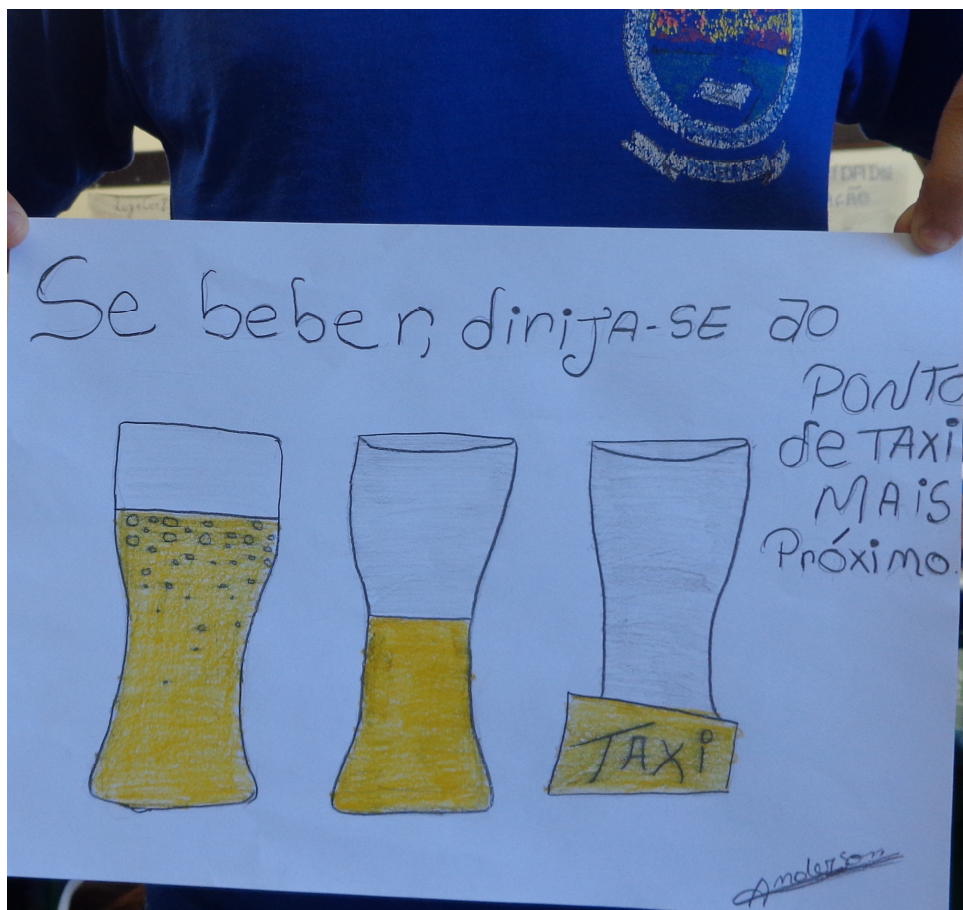 Se beber, dirija-SE ao
PONTO
de TAXI
MAIS
Próximo.
TAXI
Anderson